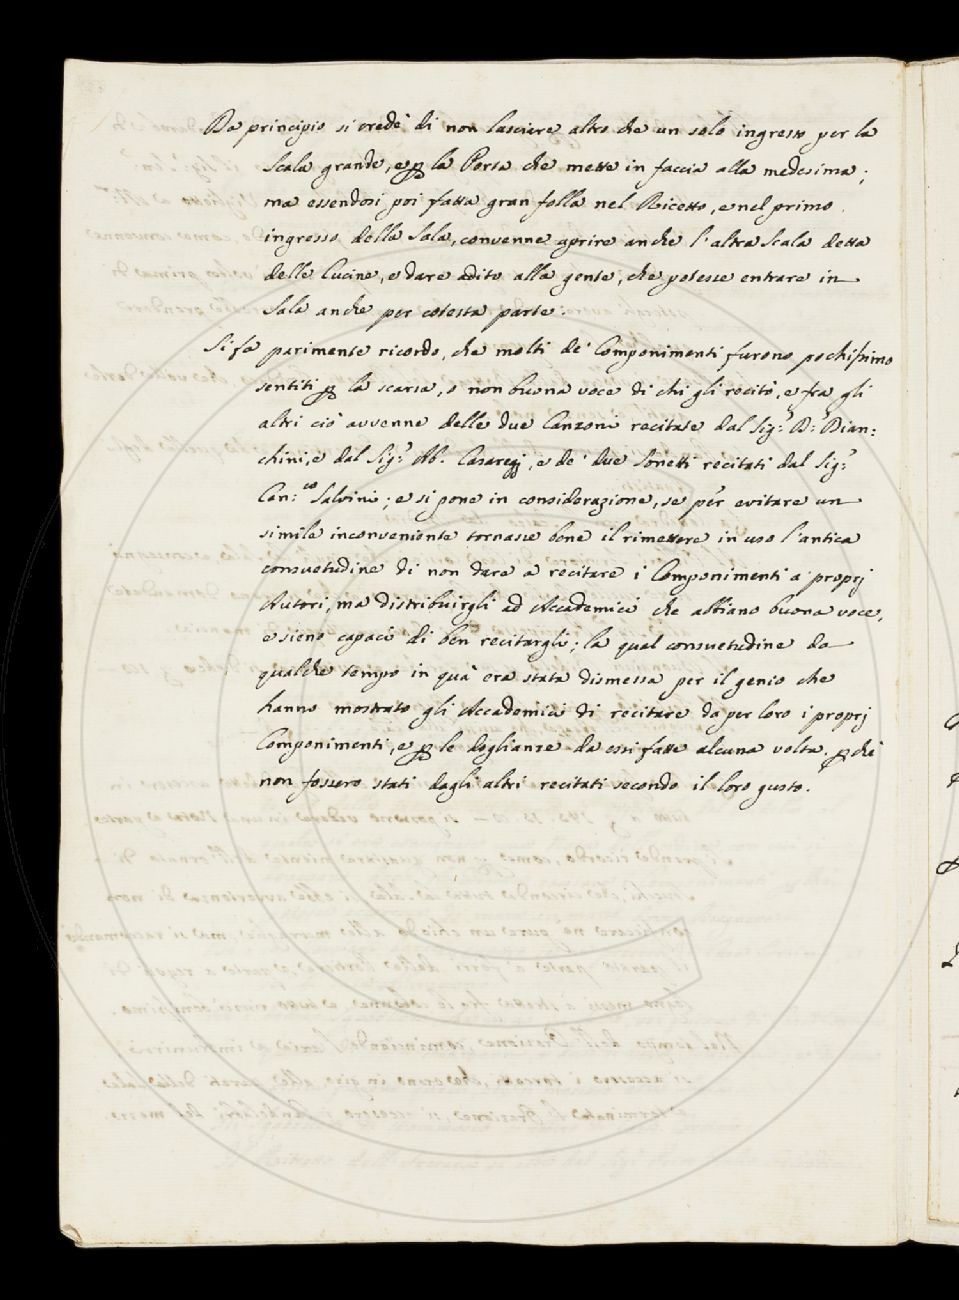 Da principio si credè di non lasciare altro che un solo ingresso per la
Scala grande, e p la Porta che mette in faccia alla medesima;
ma essendosi poi fatta gran folla nel Ricetto, e nel primo
ingresso della Sala, convenne aprire anche l'altra Scala detta
delle Cucine, e dare adito alla gente, che potesse entrare in
Sala anche per cotesta parte.
Si fa parimente ricordo, che molti de' Componimenti furono pochissimo
sentiti p la scarsa, o non buona voce di chi gli recitò, e fra gli
altri ciò avvenne delle due Canzoni recitate dal Sig.r D.r Bian=
chini, e dal Sig.r Ab. Casaregi, e de' due Sonetti recitati dal Sig.r
Can.co Salvini; e si pone in considerazione, se per evitare un
simile inconveniente tornasse bene il rimettere in uso l'antica
consuetudine di non dare a recitare i Componimenti a' proprj
Autori, ma distribuirgli ad Accademici che abbiano buona voce,
e sieno capaci di ben recitargli; la qual consuetudine da
qualche tempo in quà era stata dismessa per il genio che
hanno mostrato gli Accademici di recitare da per loro i proprj
Componimenti, e p le doglianze da essi fatte alcuna volta, p chè
non fossero stati dagli altri recitati secondo il loro gusto.